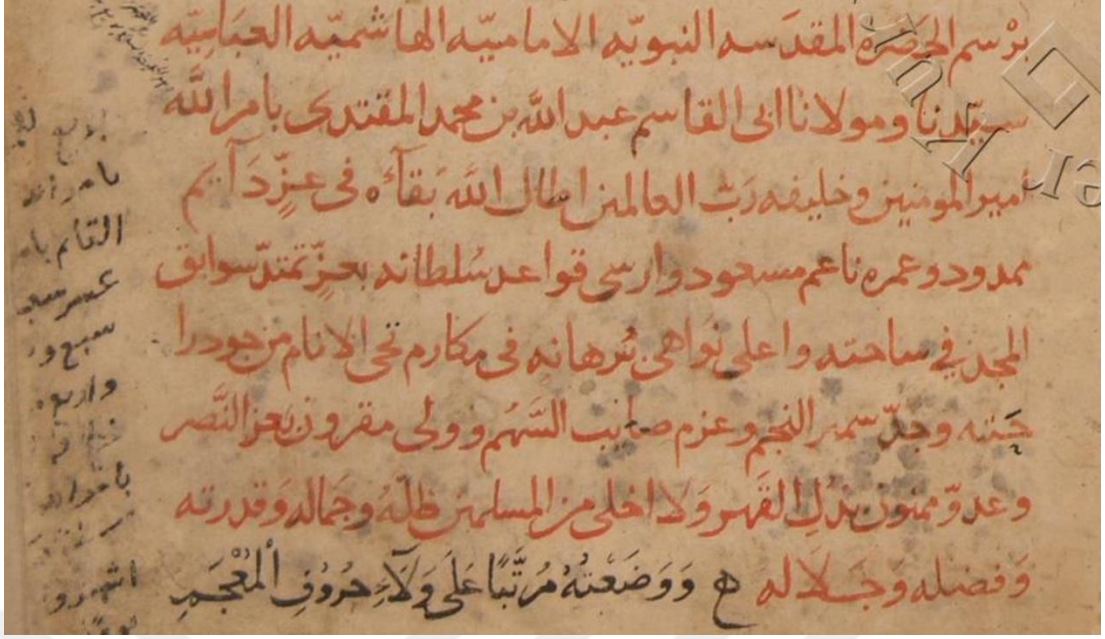 برسم الحضرة المقدسه النبويه الاماميه الهاشميه العباسيه
سيدنا ومولانا ابى القاسم عبد الله بن محمد المقتدى بامر الله
امير المومنين وخليفه رب العالمين اطال الله بقآءه فى عز دآيم
ممدود وعمره ناعم مسعود وارسى قواعد سلطانه بعز تمتد سوابق
المجد في ساحته واعلى نواهى برهانه فى مكارم تحى الانام من جود را
حته وجد سمير النجم وعزم صايب السهم وولى مقرون بعز النصر
وعدو ممنون بذل القهر ولا اخلى من المسلمين ظله وجماله وقدرته
وفضله وجلاله ه وَوَضَعْتُهُ مُرَتَّبًا عَلَى وَلَآءِ حُرُوْفِ الْمُعْجَمِ
بامر الله
القائم بامر
سبع و